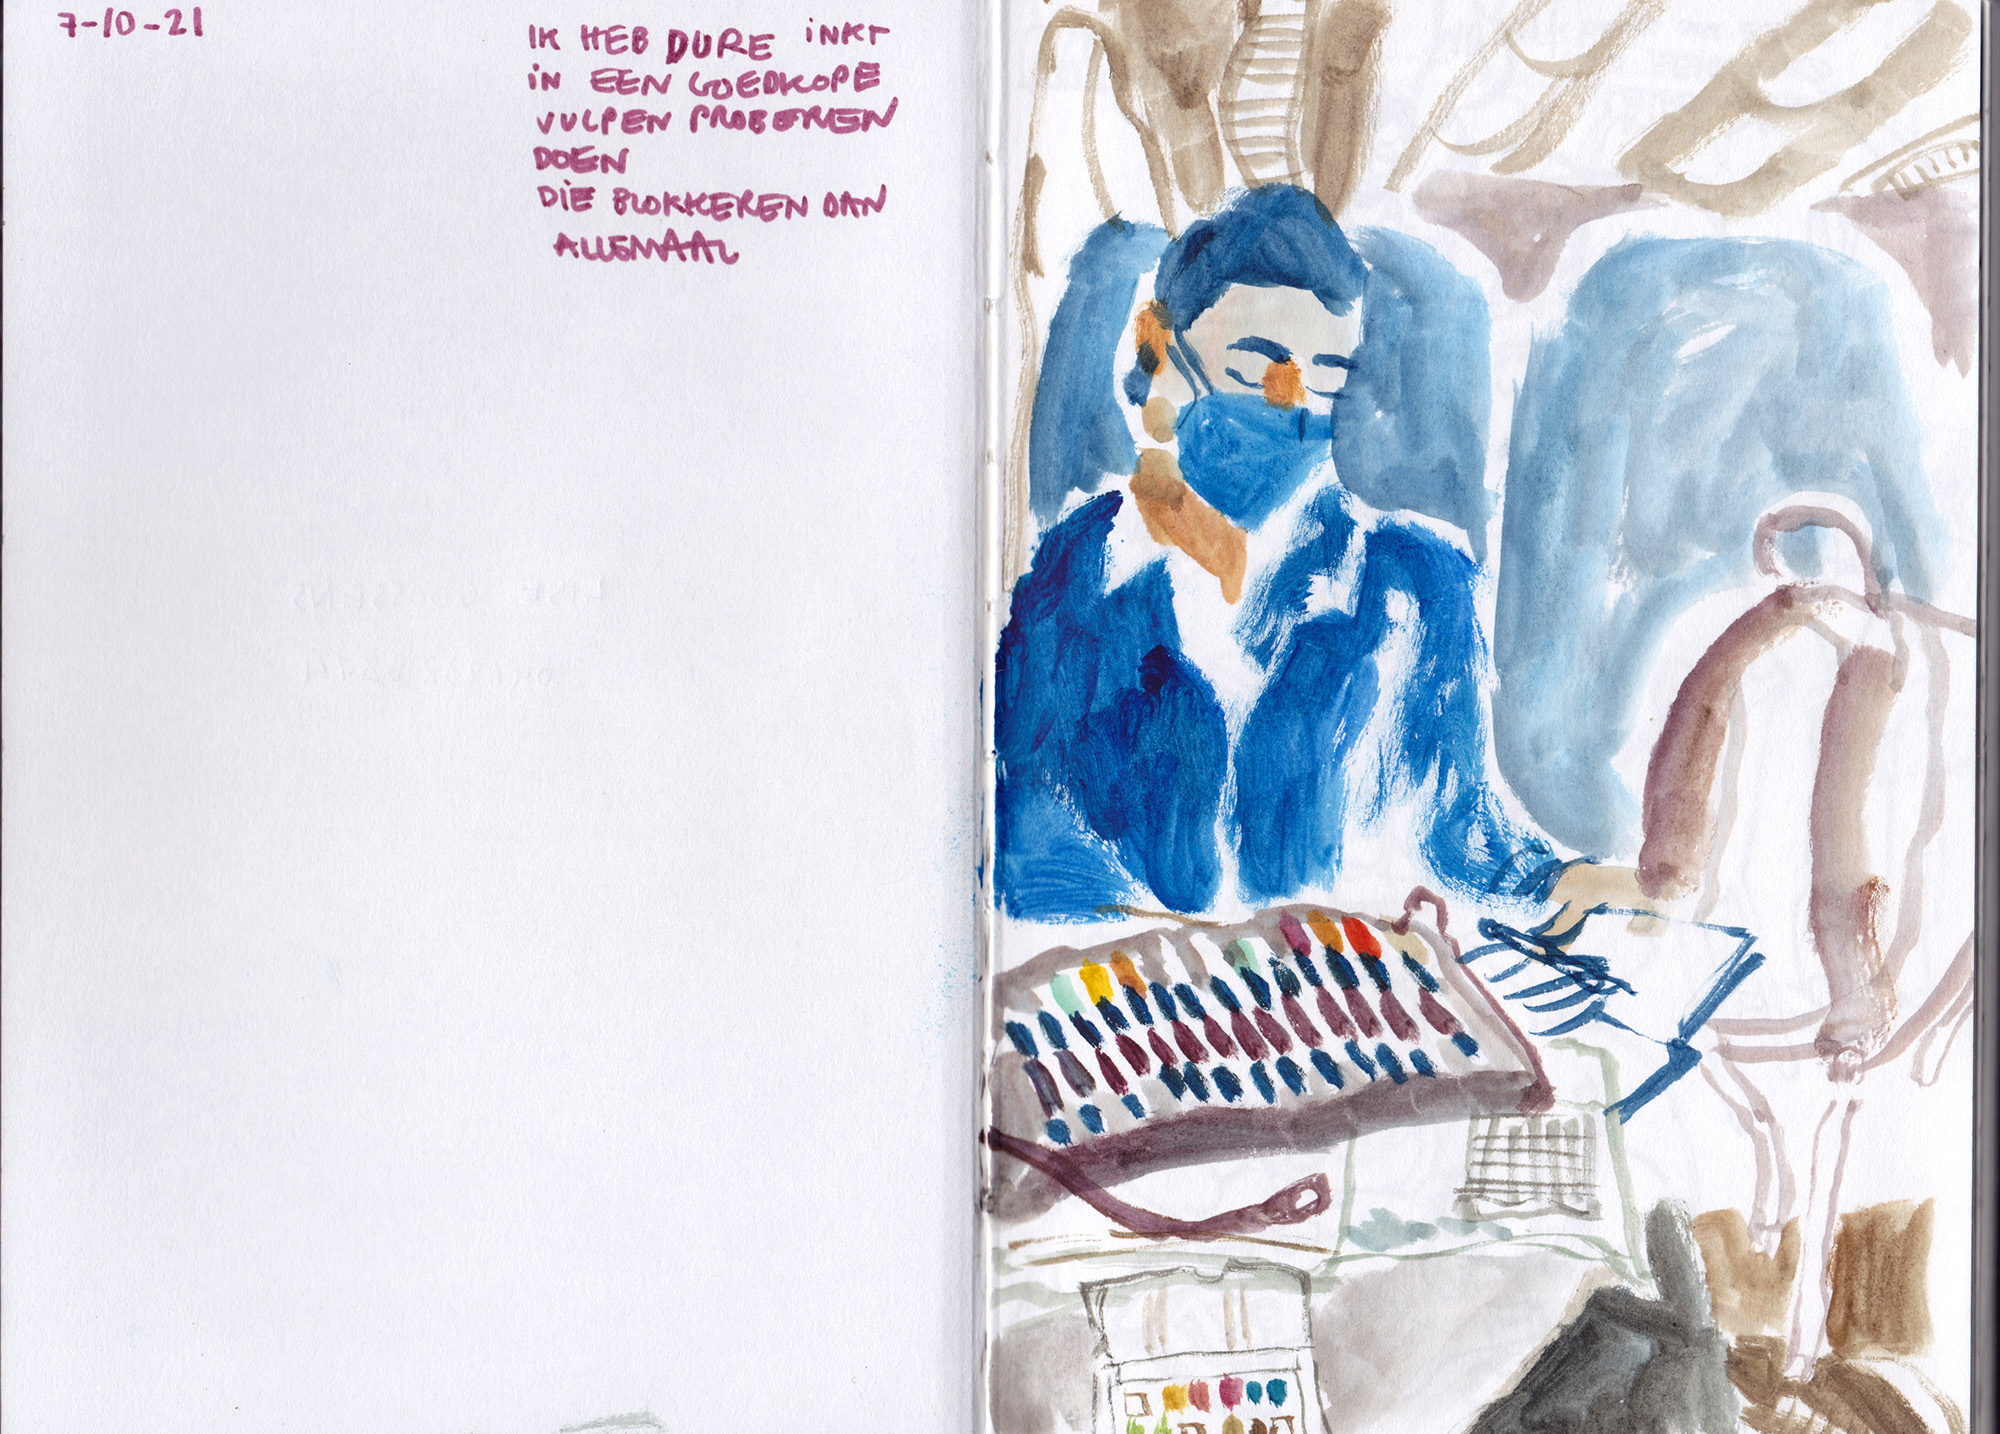 7-10-21
IK HEB DURE iNKT
iN EEN GOEDKOPE
VULPEN PROBEREN
DOEN
DiE BLOKKEREN DAN
ALLEMAAL